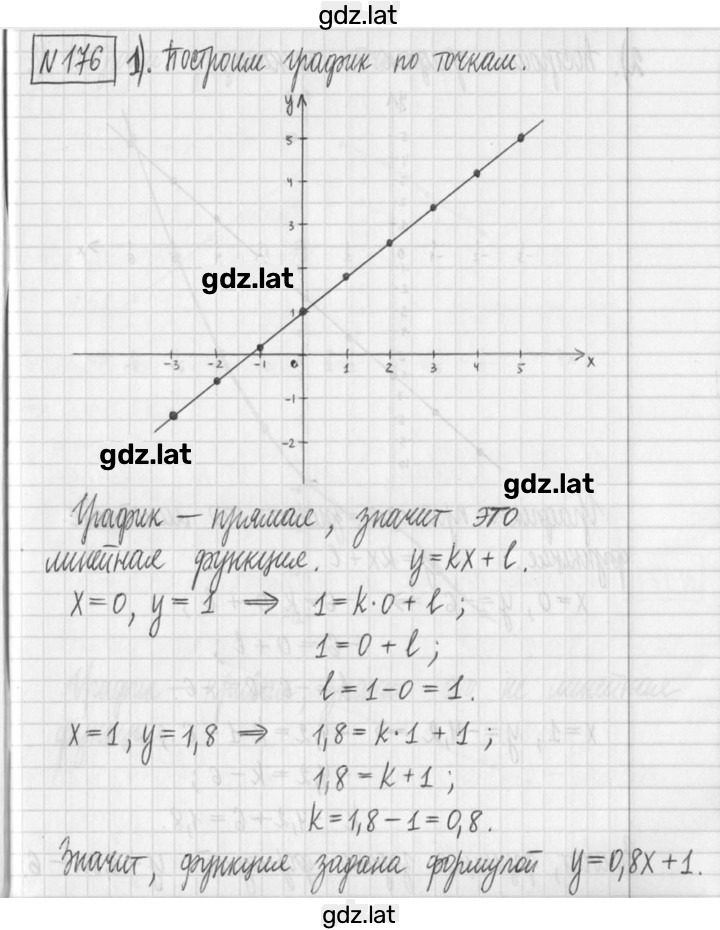 gdz.lat
№176 1). Построим график по точкам.
y
5
4
3
gdz.lat
1
-3 -2 -1 0 1 2 3 4 5 x
-1
-2
gdz.lat
gdz.lat
График – прямая, значит это
линейная функция. y=kx+l.
x=0, y=1 ⇒ 1=k·0+l;
1=0+l;
l=1-0=1.
x=1, y=1,8 ⇒ 1,8=k·1+1;
1,8=k+1;
k=1,8-1=0,8.
Значит, функция задана формулой y=0,8x+1.
gdz.lat